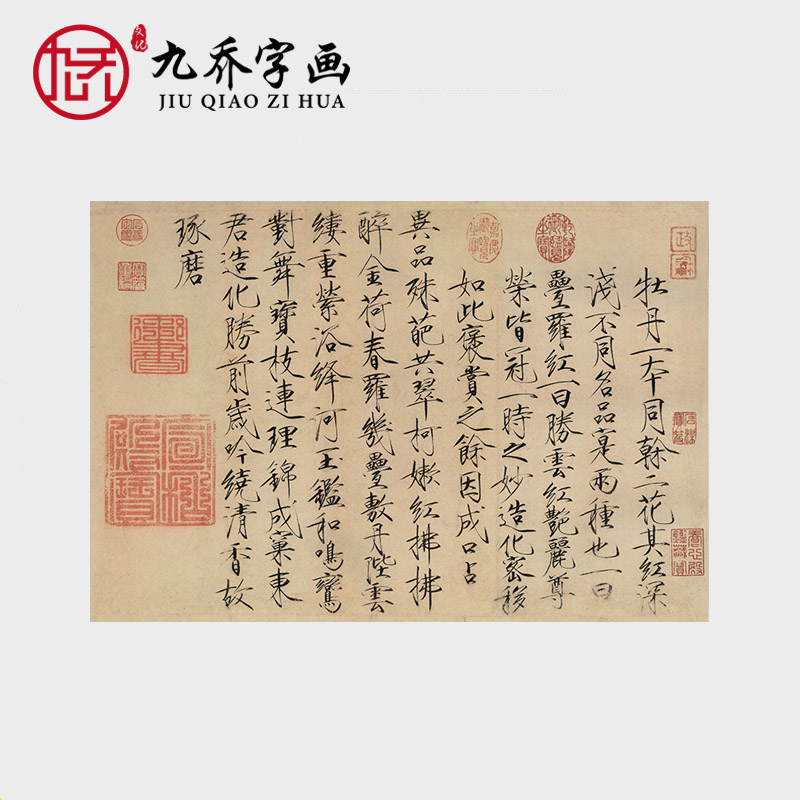 文化
九乔字画
JIU QIAO ZI HUA
牡丹一本同榦二花其紅深
淺不同名品寔兩種也一曰
疊羅紅一曰勝雲紅艷麗尊
榮皆冠一時之妙造化密移
如此褒賞之餘因成口占
異品殊葩共翠柯嫩紅拂拂
醉金荷春羅幾疊敷丹陛雲
縷重縈浴絳河玉鑑和鳴鸞
對舞寶枝連理錦成窠東
君造化勝前歲吟繞清香故
琢磨